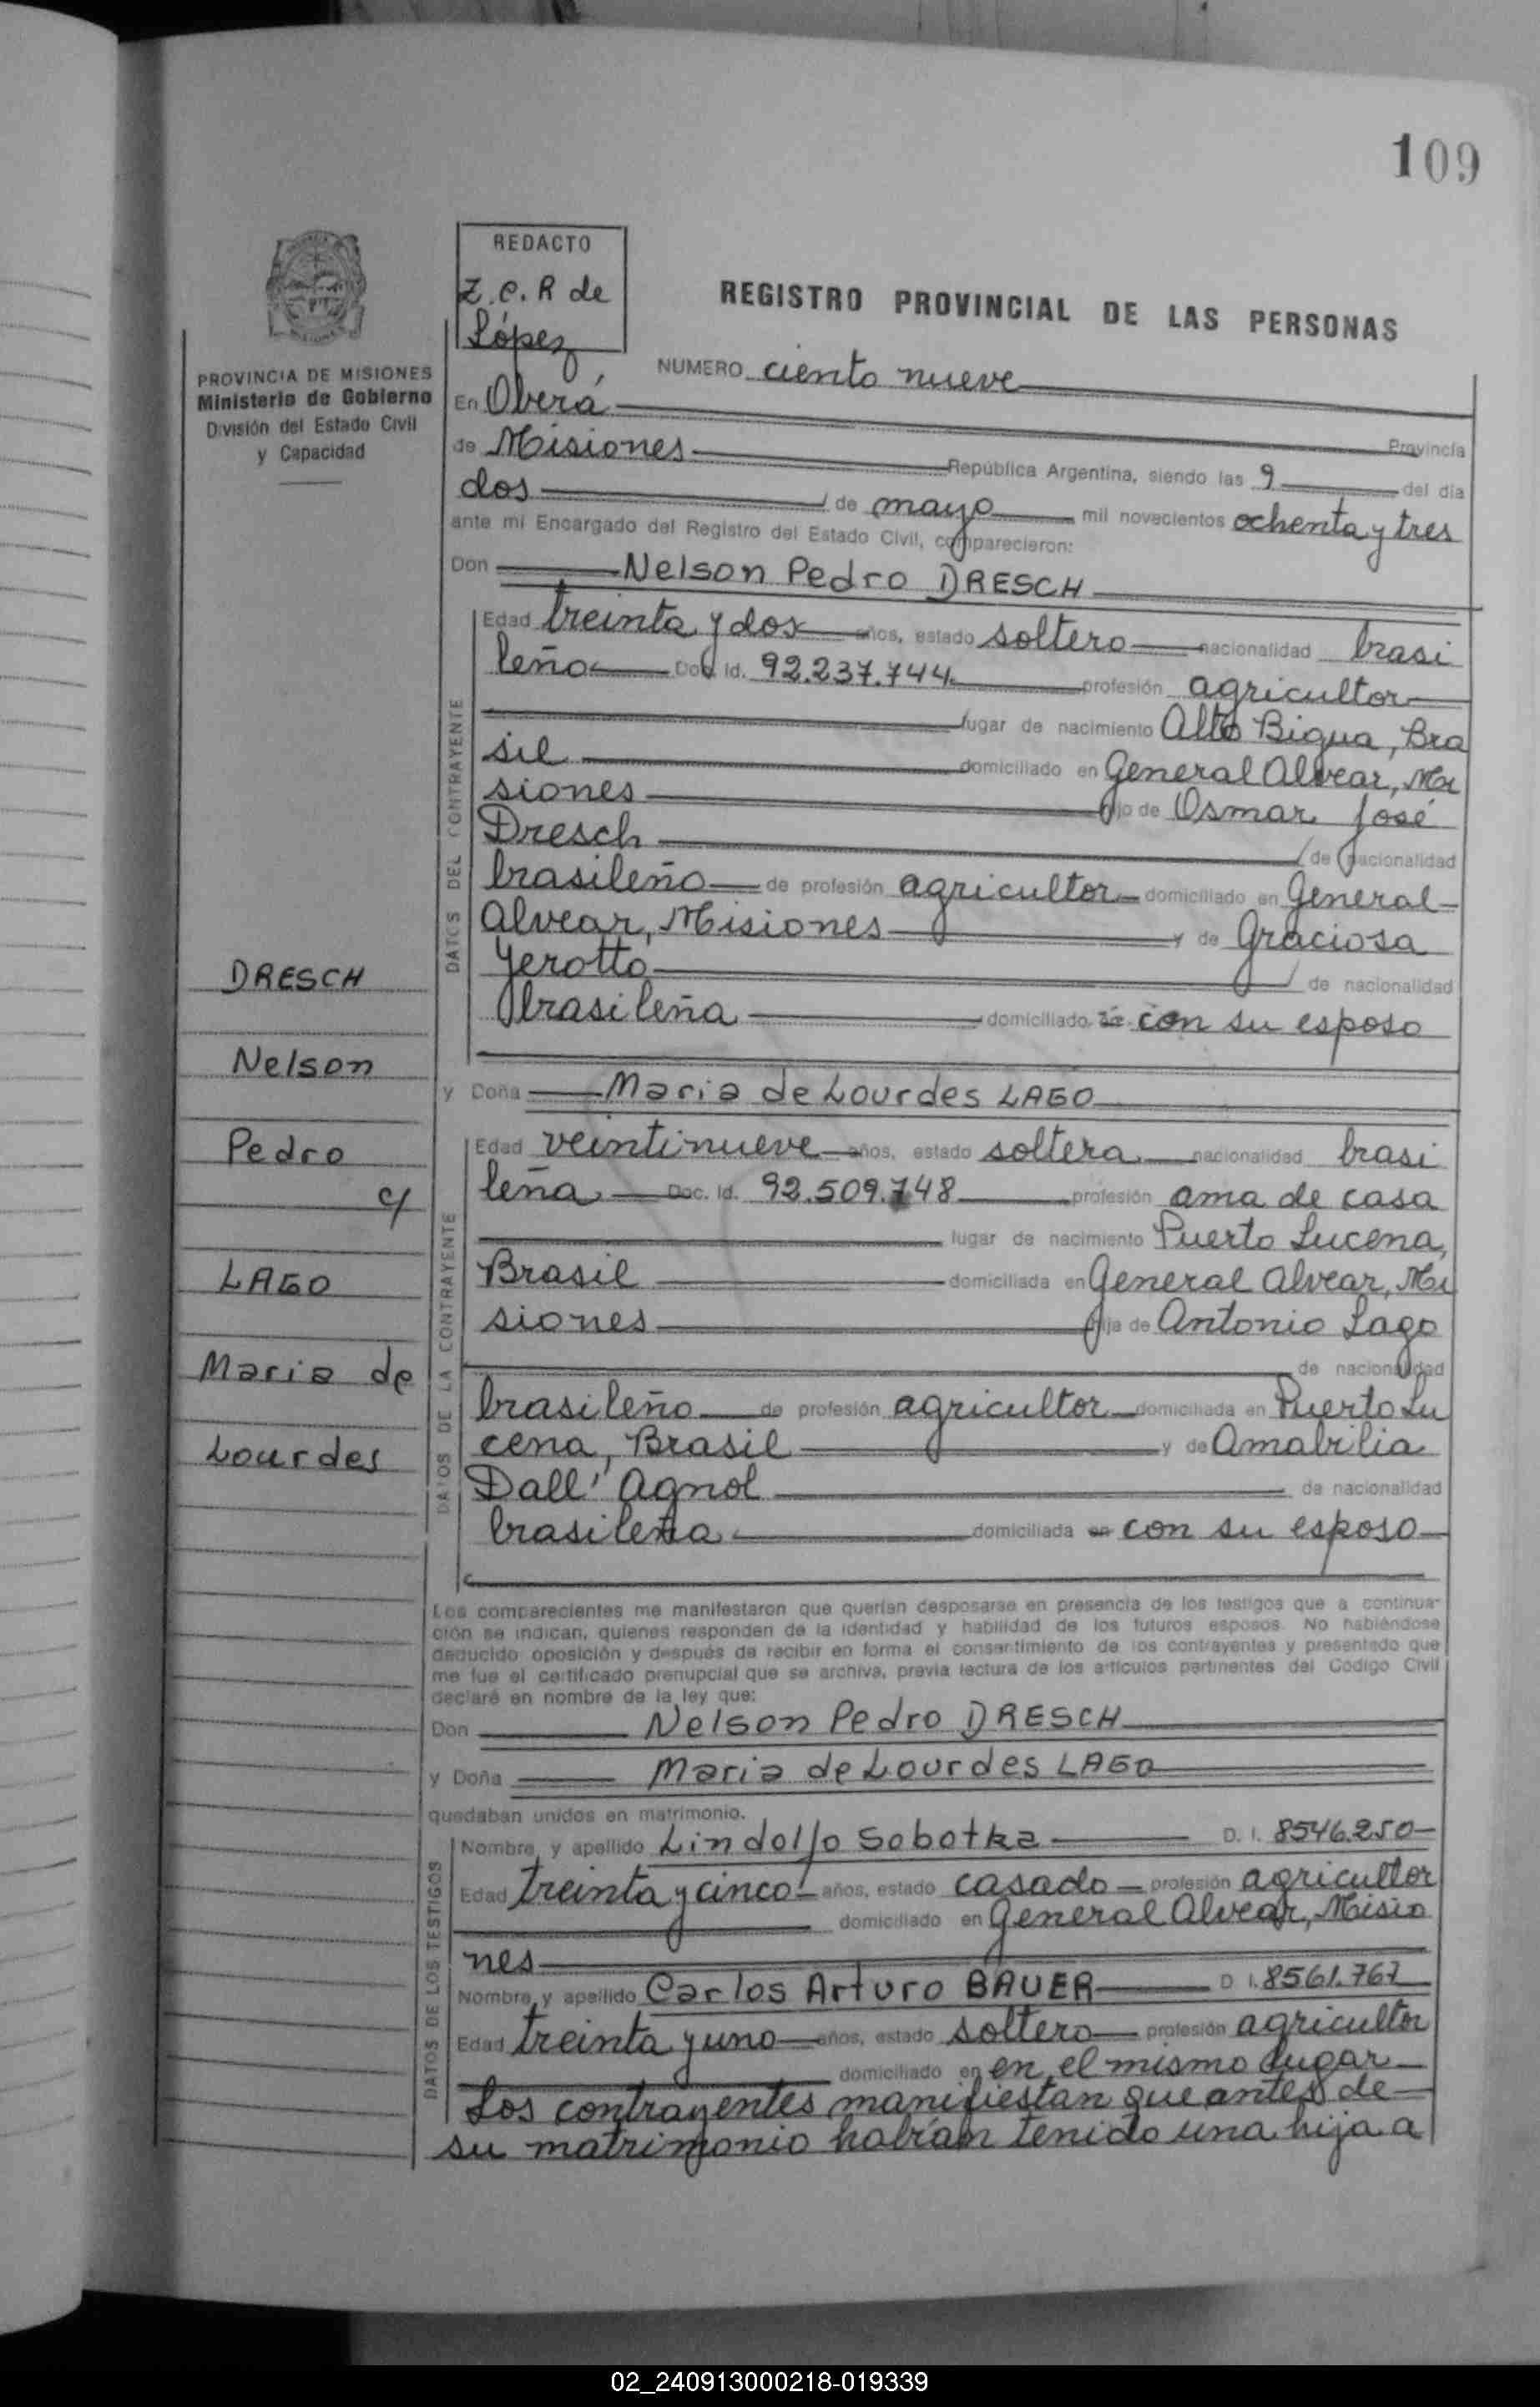 109
REDACTO
Z.C.R de
López
REGISTRO PROVINCIAL DE LAS PERSONAS
PROVINCIA DE MISIONES
Ministerio de Gobierno
División del Estado Civil
y Capacidad
NUMERO ciento nueve
En Oberá
Provincia
de Misiones República Argentina, siendo las 9 del día
dos de mayo mil novecientos ochenta y tres
ante mi Encargado del Registro del Estado Civil, comparecieron:
Don Nelson Pedro DRESCH
DATOS DEL CONTRAYENTE
Edad treinta y dos años, estado soltero nacionalidad brasi
leño Doc. Id. 92.237.744 profesión agricultor
lugar de nacimiento Alto Bigua, Bra
sil domiciliado en General Alvear, Mi
siones hijo de Osmar José
Dresch de nacionalidad
brasileño de profesión agricultor domiciliado en General
Alvear, Misiones y de Graciosa
Yerotto de nacionalidad
brasileña domiciliado con su esposo
y Doña Maria de Lourdes LAGO
DATOS DE LA CONTRAYENTE
Edad veintinueve años, estado soltera nacionalidad brasi
leña Doc. Id. 92.509.748 profesión ama de casa
lugar de nacimiento Puerto Lucena,
Brasil domiciliada en General Alvear, Mi
siones hija de Antonio Lago
de nacionalidad
brasileño de profesión agricultor domiciliada en Puerto Lu
cena, Brasil y de Amabilia
Dall' Agnol de nacionalidad
brasileña domiciliada en con su esposo
DRESCH
Nelson
Pedro
c/
LAGO
Maria de
Lourdes
Los comparecientes me manifestaron que querían desposarse en presencia de los testigos que a continua-
ción se indican, quienes responden de la identidad y habilidad de los futuros esposos. No habiéndose
deducido oposición y después de recibir en forma el consentimiento de los contrayentes y presentado que
me fue el certificado prenupcial que se archiva, previa lectura de los artículos pertinentes del Código Civil
declaré en nombre de la ley que:
Don Nelson Pedro DRESCH
y Doña Maria de Lourdes LAGO
quedaban unidos en matrimonio.
DATOS DE LOS TESTIGOS
Nombre y apellido Lindolfo Sobotka D. I. 8546.250
Edad treinta y cinco años, estado casado profesión agricultor
domiciliado en General Alvear, Misio
nes
Nombre y apellido Carlos Arturo BAUER D. I. 8561.767
Edad treinta y uno años, estado soltero profesión agricultor
domiciliado en en el mismo lugar
Los contrayentes manifiestan que antes de
su matrimonio habían tenido una hija a
02_240913000218-019339